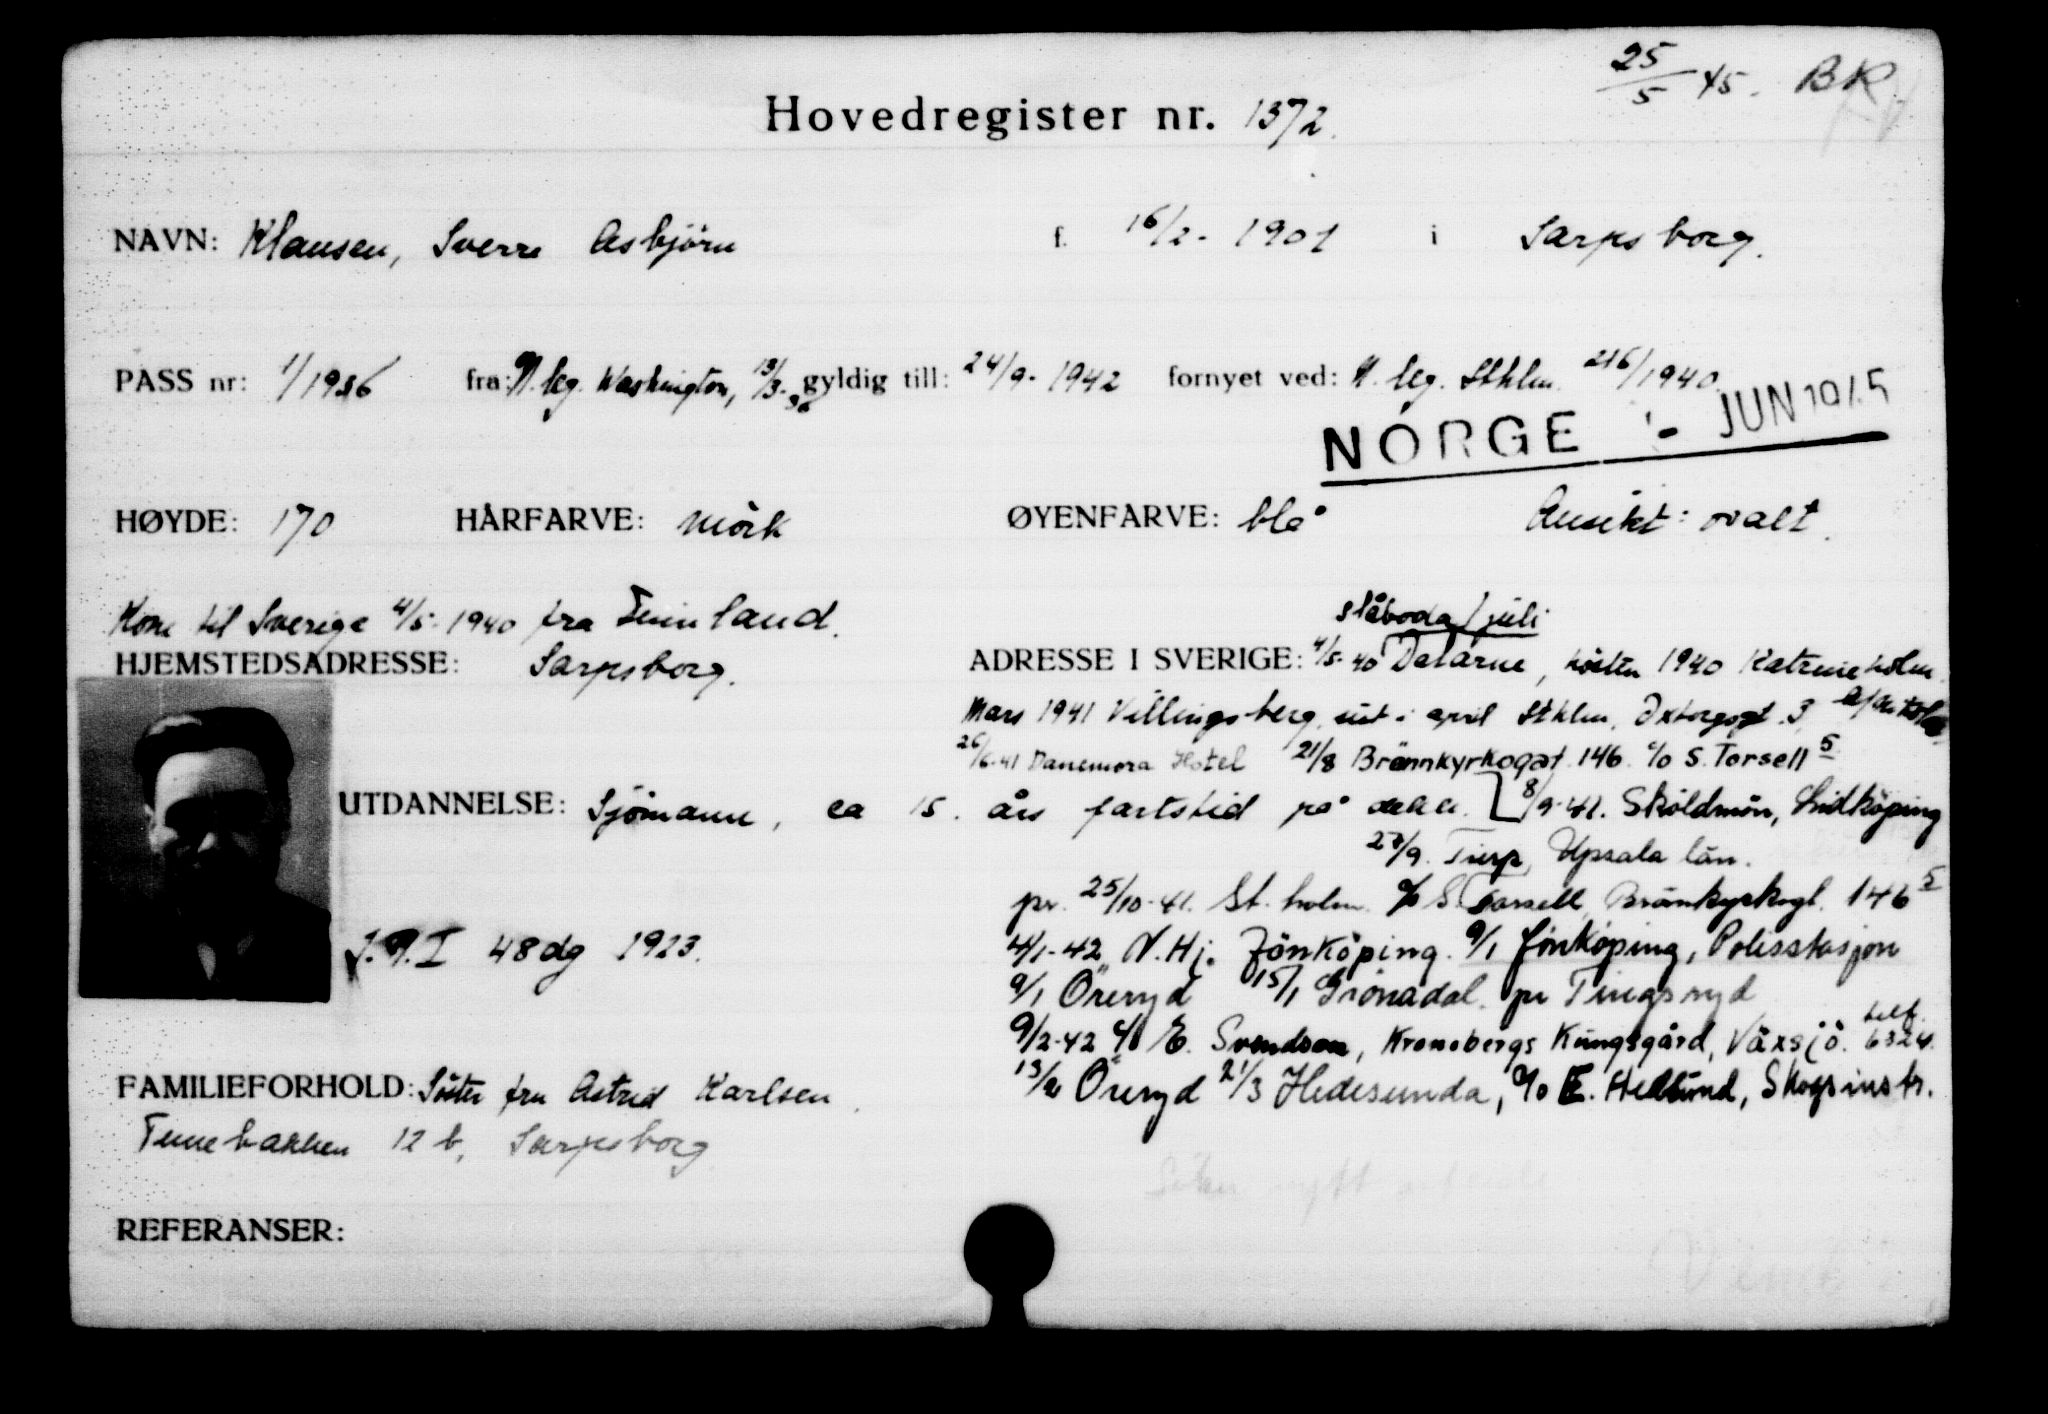 25/5 45. BR
Hovedregister nr. 1372.
NAVN: Klausen, Sverre Asbjörn f. 16/2- 1901 i Sarpsborg.
PASS nr: 1/1936 fra: N. leg. Washington, 13/3-36 gyldig till: 24/9- 1942 fornyet ved: N. leg. Sthlm. 1940
NORGE - JUN 1945
HØYDE: 170 HÅRFARVE: mörk ØYENFARVE: blå Ansikt: ovalt.
Kom til Sverige 4/5- 1940 fra Finnland.
HJEMSTEDSADRESSE: Sarpsborg.
slåboda / juli
ADRESSE I SVERIGE: 4/5-40 Dalarne, hösten 1940 Katrineholm.
Mars 1941 Villingsberg, sist i april Sthlm, Oxtorgsgt. 3,
26/6-41 Danemora Hotel 21/8 Brännkyrkogat. 146 c/o S. Torsell 5
UTDANNELSE: Sjömann, ca 15. års fartstid på dekk. 8/9-41. Sköldmön, Lidköping
27/9. Tierp, Upsala län.
pr. 25/10-41. St. holm. c/o S. Torsell, Brännkyrkogt. 146 5
I.R.I 48 dg 1923.
4/1-42 N. Hj. Jönköping. 9/1 Jönköping, Polisstasjon
9/1 Öreryd 15/1 Grönadal. pr Tingsryd
9/2-42 c/o E. Svendsen, Kronobergs Kungsgård, Växsjö. telf. 6324.
FAMILIEFORHOLD: Söster fru Astrid Karlsen,
13/2 Öreryd 21/3 Hedesunda, c/o E. Hedlund, Skogsinstr.
Tunebakken 12 b, Sarpsborg
Söker nytt
REFERANSER: